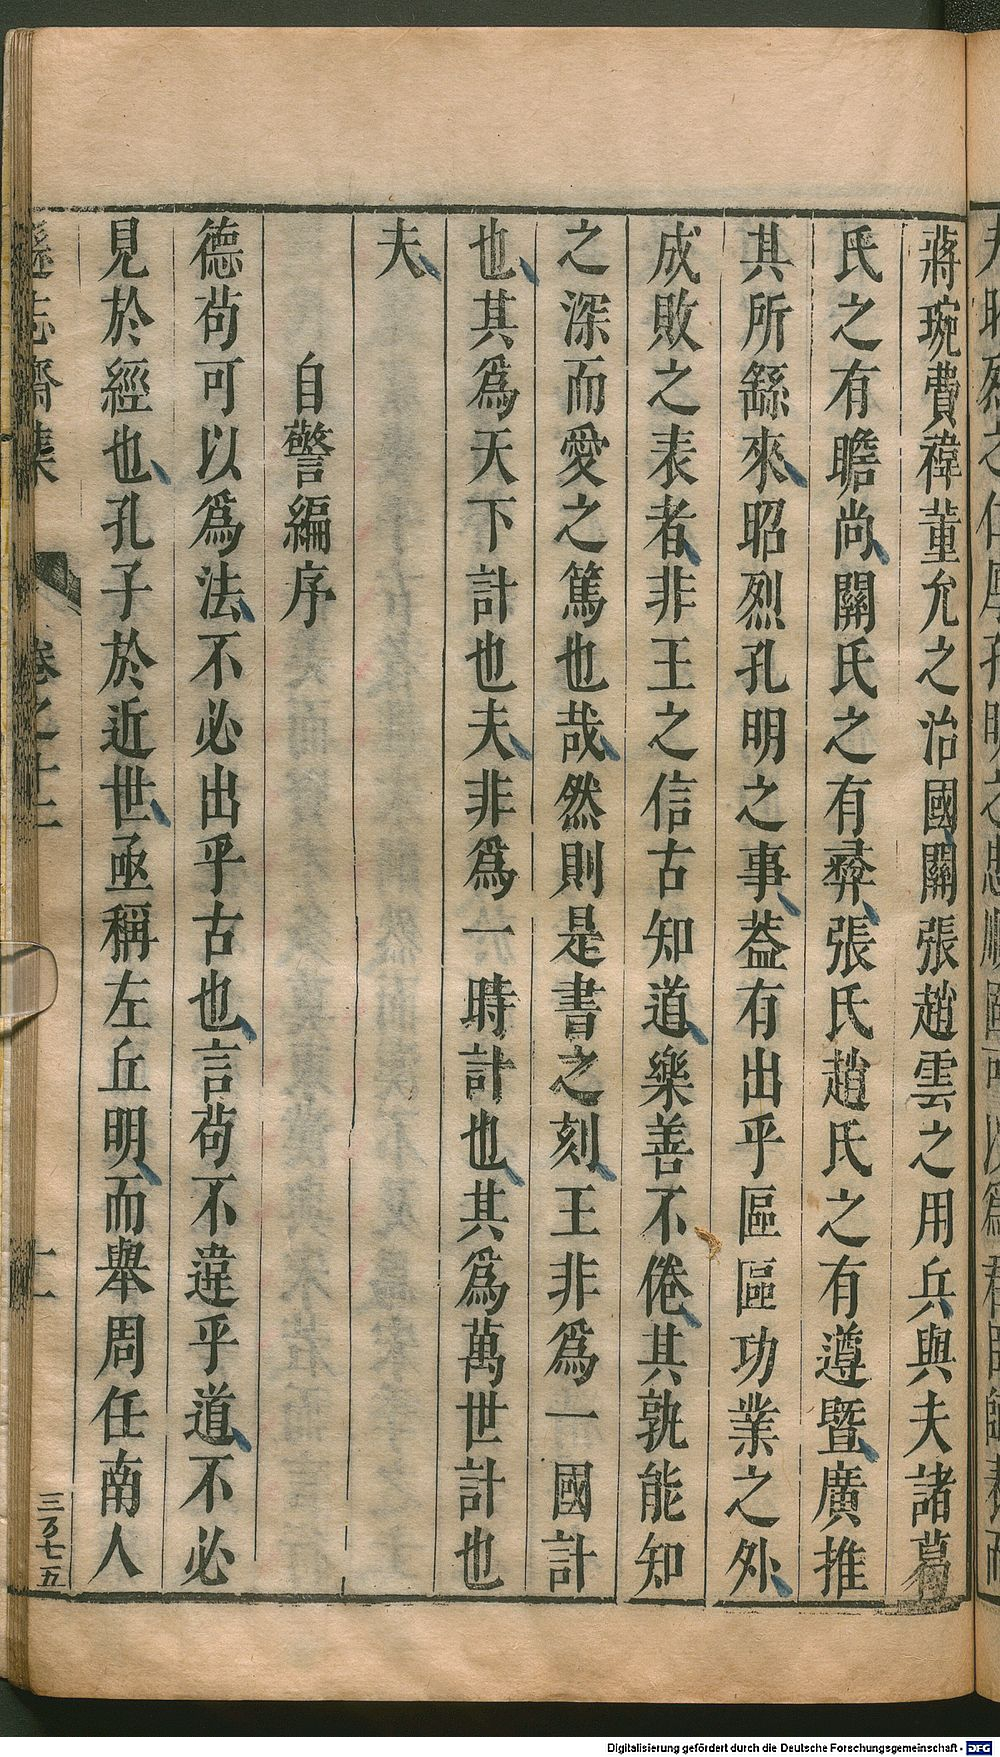 蔣琬費禕董允之治國關張趙雲之用兵與夫諸葛
氏之有瞻尚關氏之有彛張氏趙氏之有遵暨廣推
其所繇來昭烈孔明之事葢有出乎區區功業之外
成敗之表者非王之信古知道樂善不倦其孰能知
之深而愛之篤也哉然則是書之刻王非爲一國計
也其爲天下計也夫非爲一時計也其爲萬世計也
夫
自警編序
德苟可以爲法不必出乎古也言苟不違乎道不必
見於經也孔子於近世亟稱左丘明而舉周任南人
遜志齋集
卷之十二
十一
三百七五
Digitalisierung gefördert durch die Deutsche Forschungsgemeinschaft - DFG